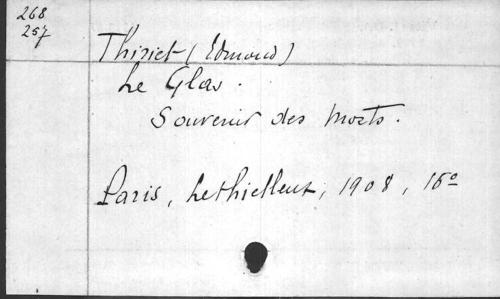 268
257
Thiriet (Edmond)
Le Glas.
Souvenir des morts.
Paris, Lethielleux, 1908, 16º